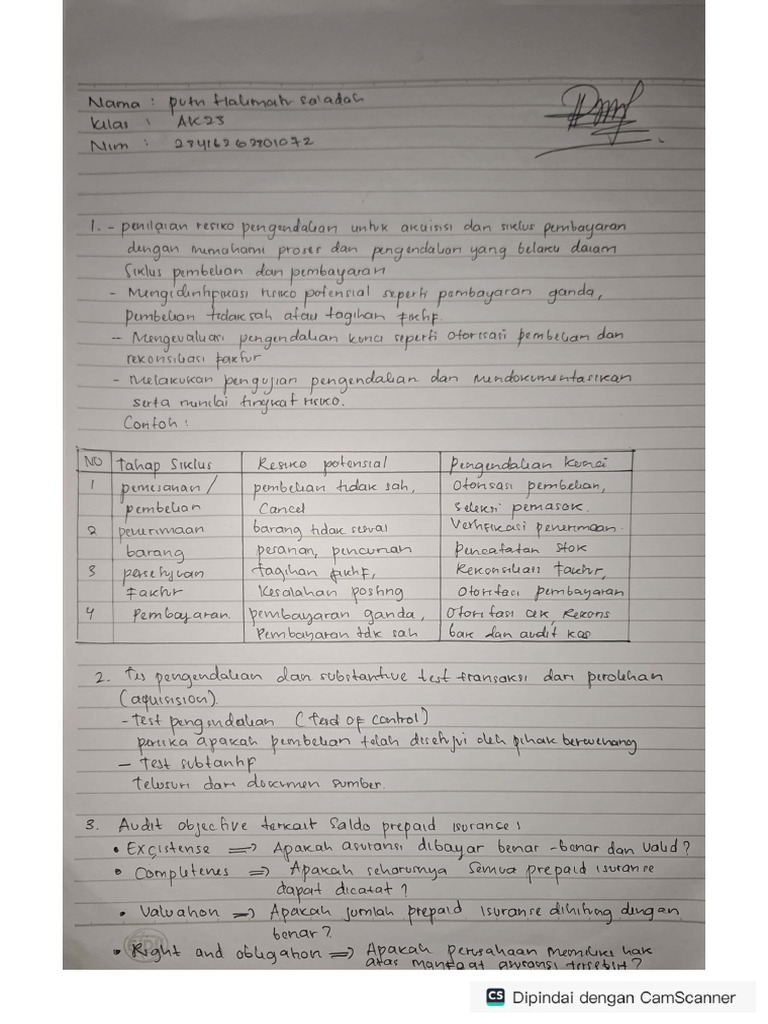 Nama : Putri Halimah Sa'adah
Kelas : AK23
Nim : 23416262201072
1. - penilaian resiko pengendalian untuk akuisisi dan siklus pembayaran
dengan memahami proses dan pengendalian yang belaku dalam
Siklus pembelian dan pembayaran
- Mengidentifikasi risiko potensial seperti pembayaran ganda,
pembelian tidak sah atau tagihan fiktif.
- Mengevaluasi pengendalian kunci seperti otorisasi pembelian dan
rekonsiliasi faktur
- Melakukan pengujian pengendalian dan mendokumentasikan
serta menilai tingkat risiko.
Contoh :
NO Tahap Siklus Resiko potensial Pengendalian kunci
1 pemesanan / pembelian tidak sah, Otorisasi pembelian,
pembelian Cancel Seleksi pemasok.
2 penerimaan barang tidak sesuai Verifikasi penerimaan.
barang pesanan, pencurian Pencatatan stok
3 persetujuan tagihan fiktif, Rekonsiliasi faktur,
Faktur Kesalahan posting Otorisasi pembayaran
4 Pembayaran. pembayaran ganda, Otorisasi cek, Rekons
Pembayaran tdk sah bak dan audit kas
2. Tes pengendalian dan substantive test transaksi dari perolehan
(aquisision).
- Test pengendalian ( test of control)
periksa apakah pembelian telah disetujui oleh pihak berwenang
- Test subtantif
Telusuri dari documen sumber.
3. Audit objective terkait Saldo prepaid isurance :
• Excistense => Apakah asuransi dibayar benar -benar dan valid ?
• Completenes => Apakah seharusnya Semua prepaid isuranse
dapat dicatat ?
• Valuation => Apakah jumlah prepaid Isuranse dihitung dengan
benar ?
• Right and obligation => Apakah perusahaan memiliki hak
atas manfaat asuransi tersebut ?
CS Dipindai dengan CamScanner